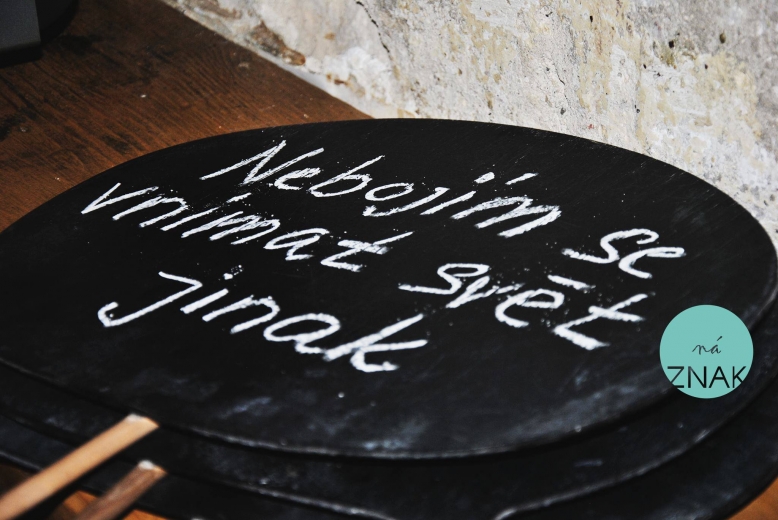 Nebojím se
vnímat svět
jinak
ná
ZNAK